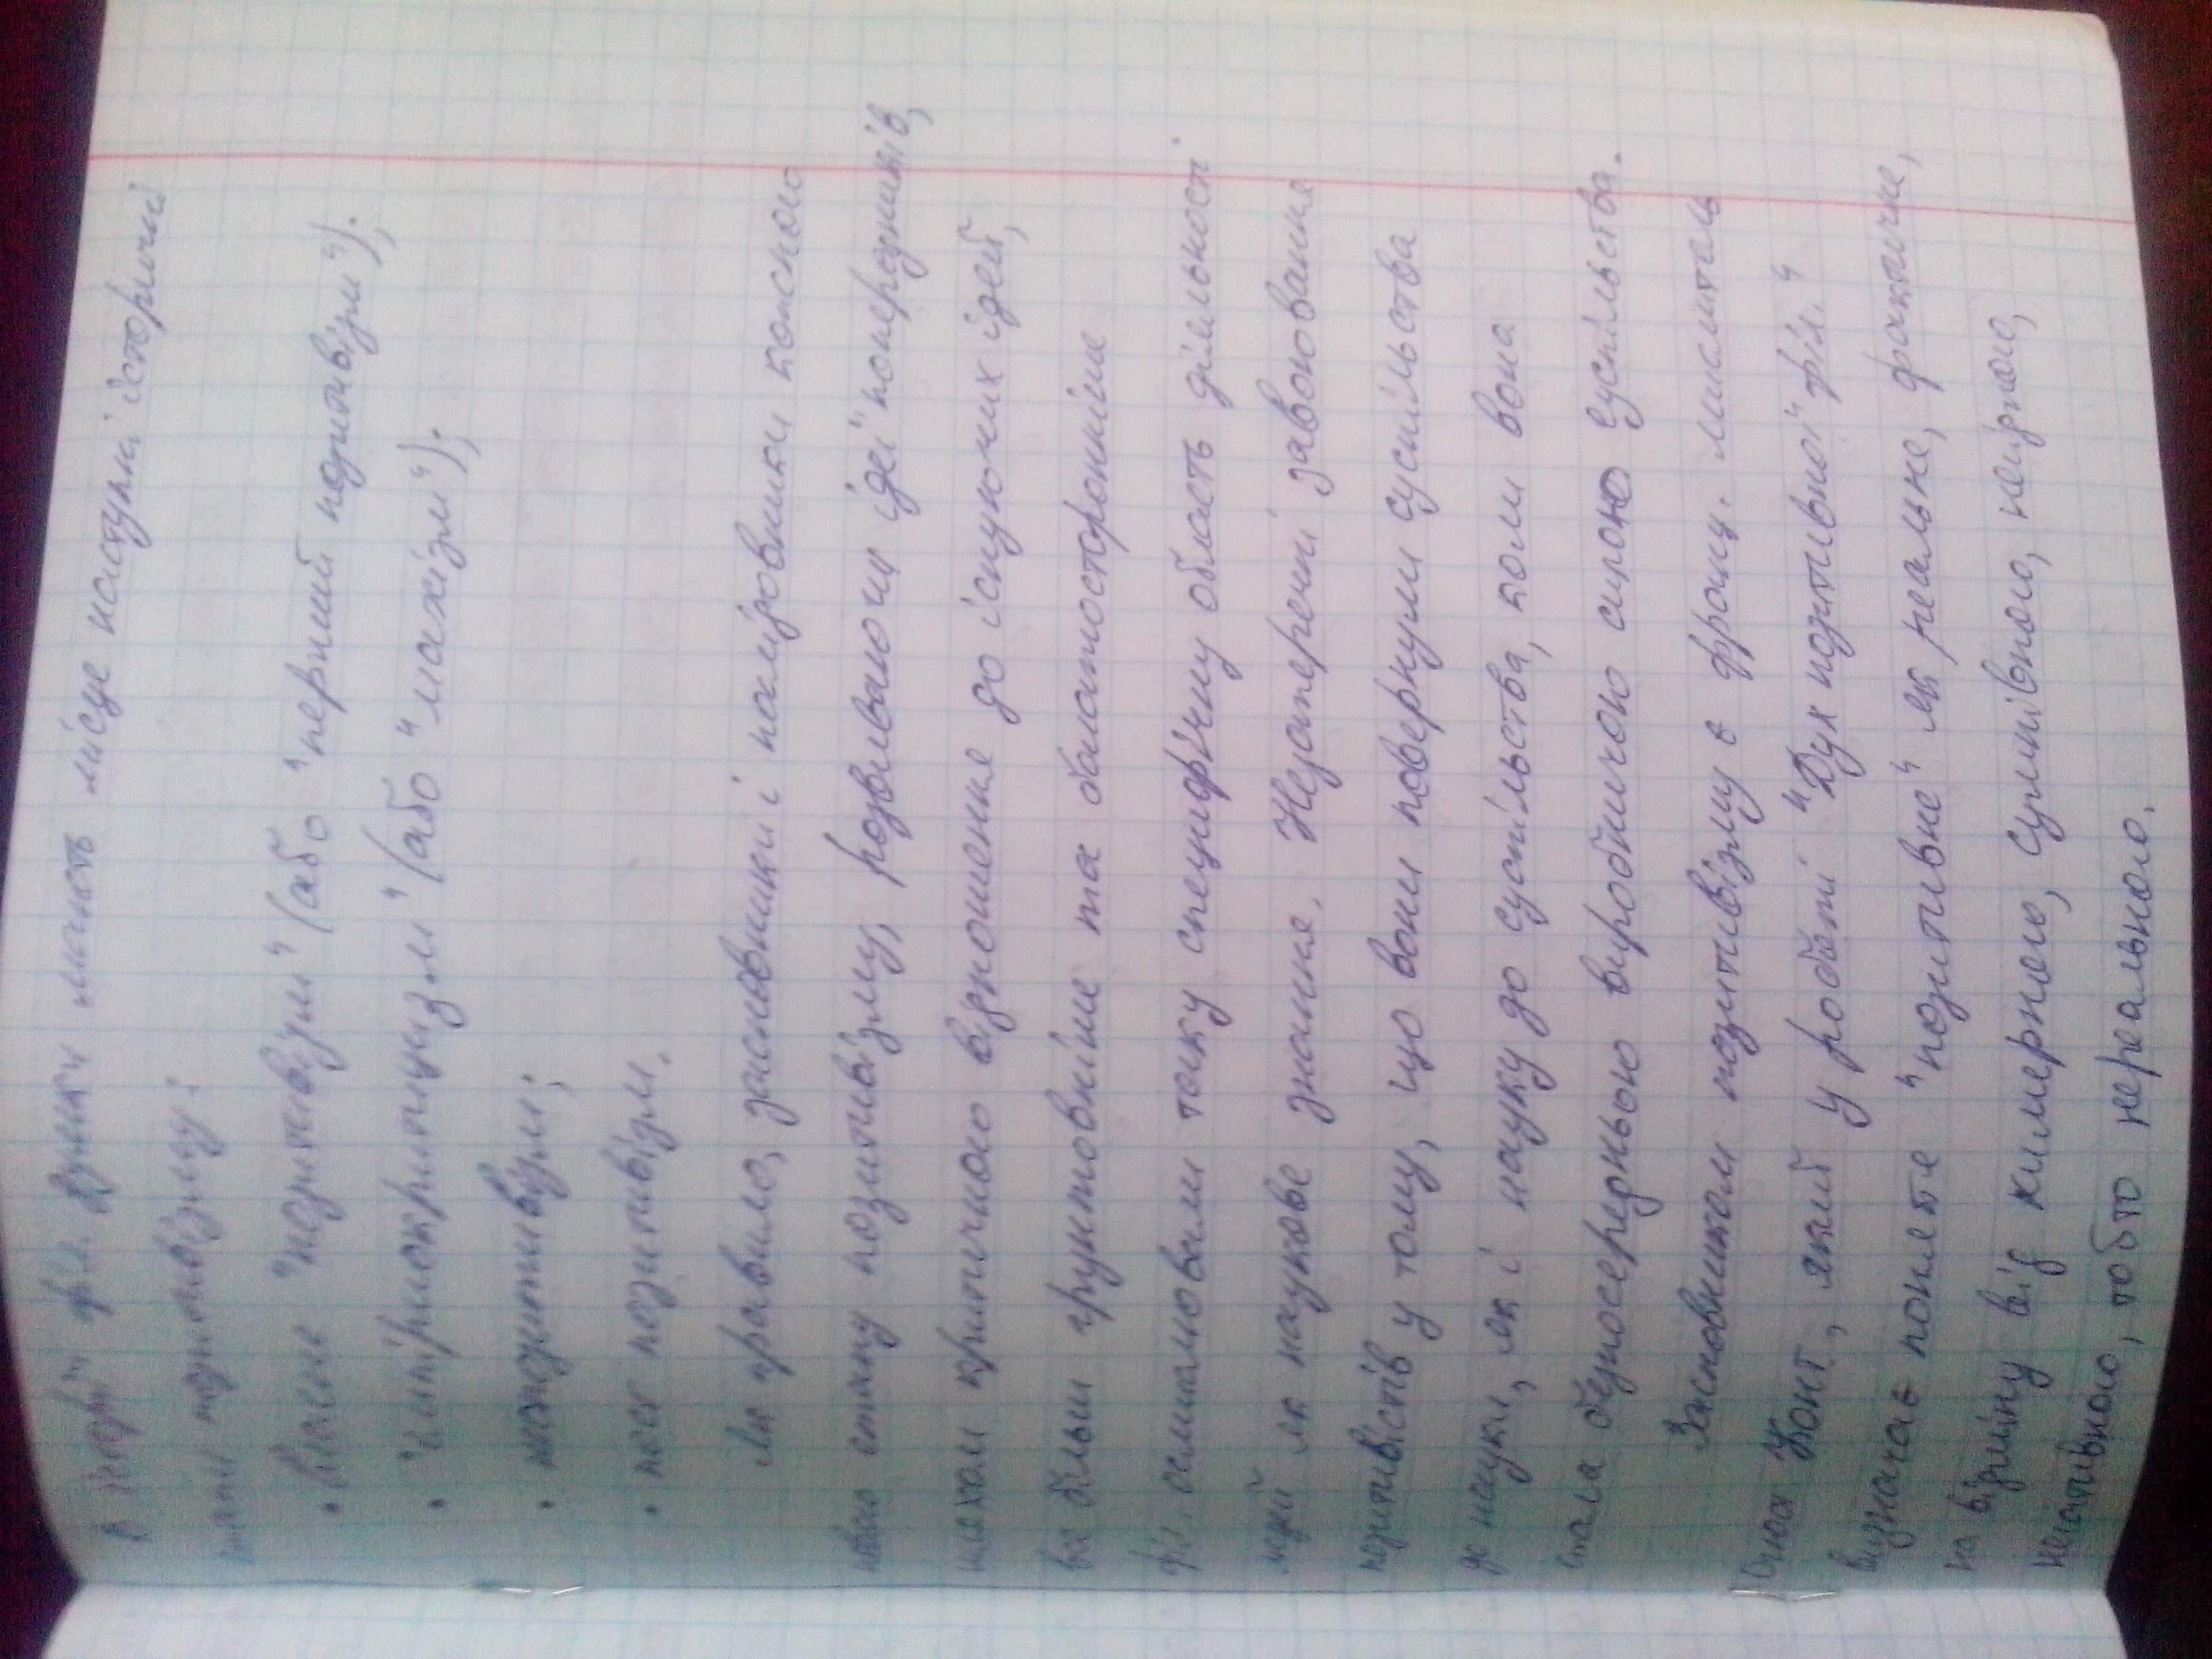 В історії філ. думки мають місце наступні історичні
етапи позитивізму:
• власне "позитивізм" (або "перший позитивізм");
• "емпіриокритицизм" (або "махізм");
• неопозитивізм;
• пост позитивізм.
Як правило, засновники і послідовники кожного
нового етапу позитивізму, розвиваючи ідеї попередників,
шляхом критичного відношення до існуючих ідей,
все більш грунтовніше та багатосторонніше
філ. осмислювали таку специфічну область діяльності
людей як наукове знання. Незаперечні завоювання
позитивістів у тому, що вони повернули суспільства
до науки, як і науку до суспільства, коли вона
стала безпосередньою виробничою силою суспільства.
Засновником позитивізму є франц. мислитель
Огюст Конт, який у роботі "Дух позитивної філ."
визначає поняття "позитивне" як реальне, фактичне,
на відміну від химерного, сумнівного,
негативного, тобто нереального.